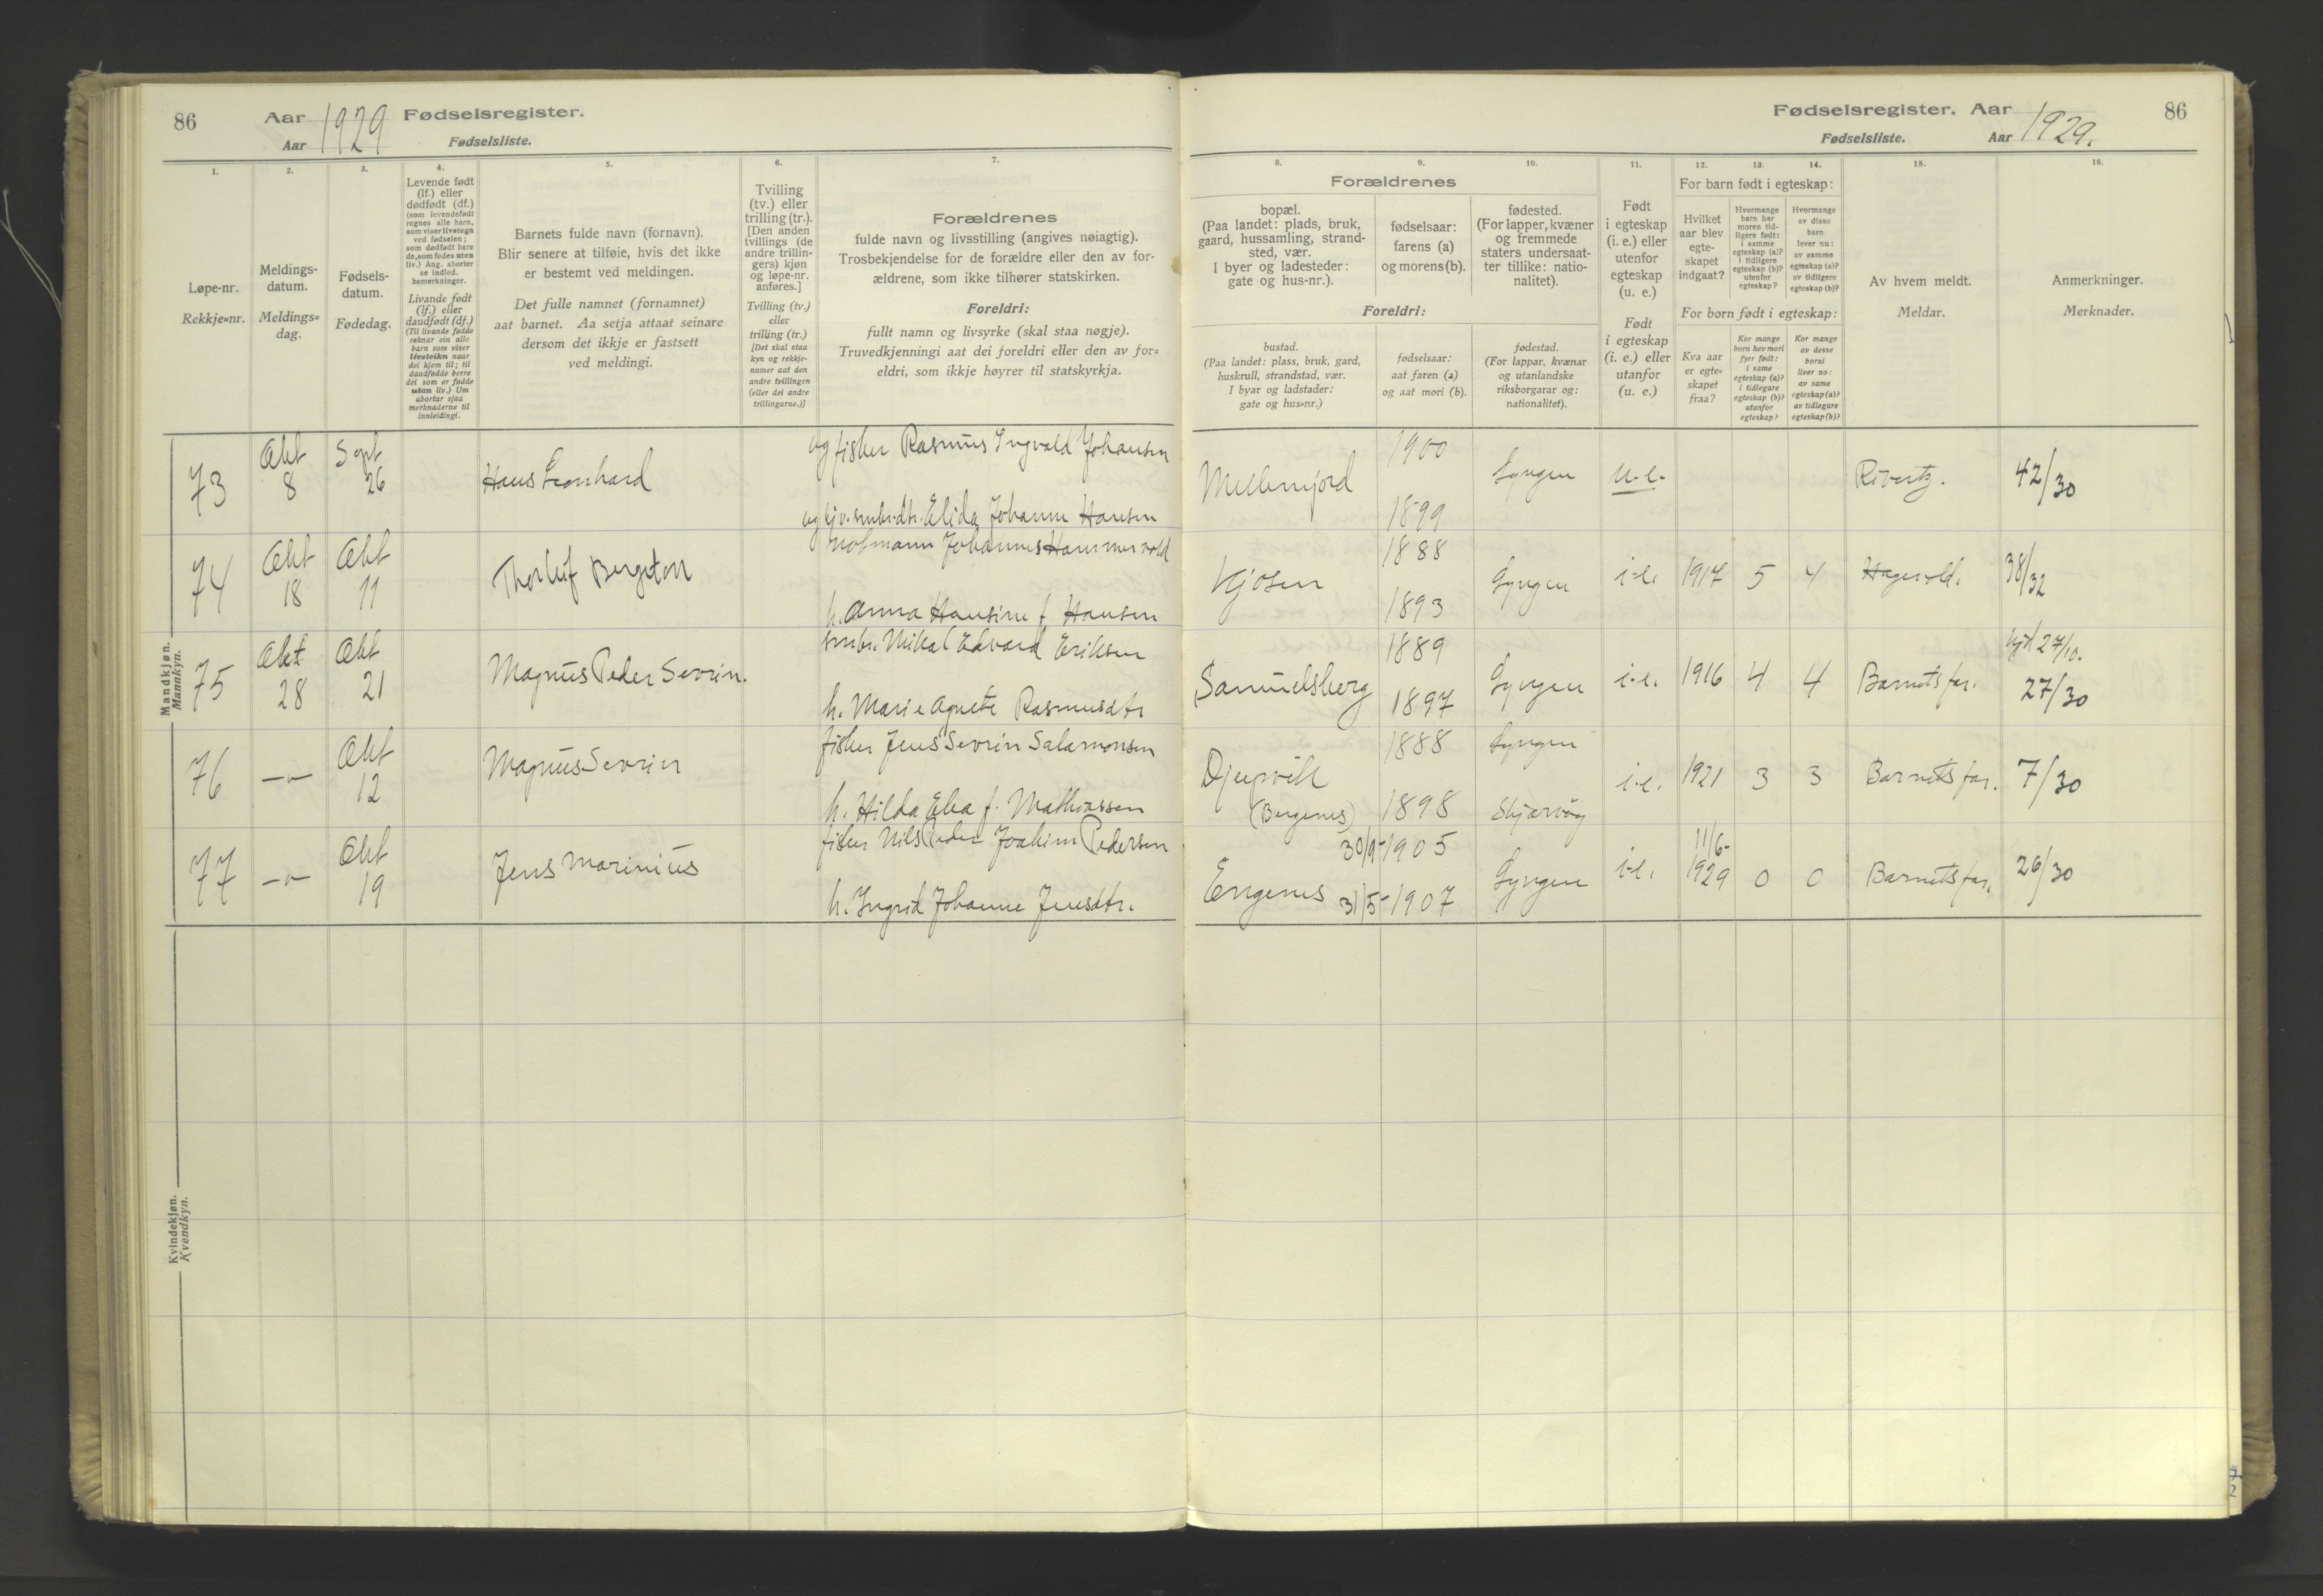 86
Aar 1929 Fødselsregister.
Aar Fødselsliste.
1.
Løpe-nr.
Rekkje=nr.
2.
Meldings-
datum.
Meldings=
dag.
3.
Fødsels-
datum.
Fødedag.
4.
Levende født
(lf.) eller
dødfødt (df.)
(som levendefødt
regnes alle barn,
som viser livstegn
ved fødselen;
som dødfødt bare
de, som fødes uten
liv.) Ang. aborter
se indled.
bemerkninger.
Livande født
(lf.) eller
daudfødt (df.)
(Til livande fødde
reknar ein alle
barn som viser
livsteikn naar
dei kjem til; til
daudfødde berre
dei som er fødde
utan liv.) Um
abortar sjaa
merknaderne til
innleidingi.
5.
Barnets fulde navn (fornavn).
Blir senere at tilføie, hvis det ikke
er bestemt ved meldingen.
Det fulle namnet (fornamnet)
aat barnet. Aa setja attaat seinare
dersom det ikkje er fastsett
ved meldingi.
6.
Tvilling
(tv.) eller
trilling (tr.).
[Den anden
tvillings (de
andre trillin-
gers) kjøn
og løpe-nr.
anføres.]
Tvilling (tv.)
eller
trilling (tr.)
[Det skal staa
kyn og rekkje-
numer aat den
andre tvillingen
(eller dei andre
trillingarne.)]
7.
Forældrenes
fulde navn og livsstilling (angives nøiagtig).
Trosbekjendelse for de forældre eller den av for-
ældrene, som ikke tilhører statskirken.
Foreldri:
fullt namn og livsyrke (skal staa nøgje).
Truvedkjenningi aat dei foreldri eller den av for=
eldri, som ikkje høyrer til statskyrkja.
Mandkjøn.
Mannkyn.
73
Okt
8
Sept
26
Hans Leonhard
ug fisker Rasmus Ingvald Johansen
ug kjv. smbr.dtr. Elida Johanne Hansen
74
Okt
18
Okt
11
Thorleif Bergeton
notmann Johannes Hammervold
h. Anna Hansine f. Hansen
75
Okt
28
Okt
21
Magnus Peder Sevrin.
smbr. Mikal Edvard Eriksen
h. Marie Agnete Rasmusdtr
76
—"—
Okt
12
Magnus Sevrin
fisker Jens Sevrin Salamonsen
h. Hilda Elea f. Mathiassen
77
—"—
Okt
19
Jens Marinius
fisker Nils Peder Joakim Pedersen
h. Ingrid Johanne Jensdtr.
Kvindekjøn.
Kvendkyn.
Fødselsregister. Aar 1929.
86
Fødselsliste. Aar
8.
Forældrenes
bopæl.
(Paa landet: plads, bruk,
gaard, hussamling, strand-
sted, vær.
I byer og ladesteder:
gate og hus-nr.).
Foreldri:
bustad.
(Paa landet: plass, bruk, gard,
huskrull, strandstad, vær.
I byar og ladstader:
gate og hus=nr.)
9.
fødselsaar:
farens (a)
og morens (b).
fødselsaar:
aat faren (a)
og aat mori (b).
10.
fødested.
(For lapper, kvæner
og fremmede
staters undersaat-
ter tillike: natio-
nalitet).
fødestad.
(For lappar, kvænar
og utanlandske
riksborgarar og:
nationalitet).
11.
Født
i egteskap
(i. e.) eller
utenfor
egteskap
(u. e.)
Født
i egteskap
(i. e.) eller
utanfor
(u. e.)
12. 13. 14.
For barn født i egteskap:
Hvilket
aar blev
egte-
skapet
indgaat?
Hvormange
barn har
moren tid-
ligere født:
i samme
egteskap (a)?
i tidligere
egteskap (b)?
utenfor
egteskap?
Hvormange
av disse
barn
lever nu:
av samme
egteskap (a)?
av tidligere
egteskap (b)?
For born født i egteskap:
Kva aar
er egte=
skapet
fraa?
Kor mange
born hev mori
fyrr født:
i same
egteskap (a)?
i tidlegare
egteskap (b)?
utanfor
egteskap?
Kor mange
av desse
borni
liver no:
av same
egteskap (a)?
av tidlegare
egteskap (b)?
15.
Av hvem meldt.
Meldar.
16.
Anmerkninger.
Merknader.
Mellemjord
1900
1899
Lyngen
u.e.
Rivertz.
42/30
Kjosen
1888
1893
Lyngen
i.e.
1917
5
4
Hagerold.
38/32
Samuelsberg
1889
1897
Lyngen
i.e.
1916
4
4
Barnets far.
hjd 27/10.
27/30
Djupvik
(Bergenes)
1888
1898
Lyngen
Skjærvøy
i.e.
1921
3
3
Barnets far.
7/30
Engenes
30/9-1905
31/5-1907
Lyngen
i.e.
11/6-
1929
0
0
Barnets far.
26/30